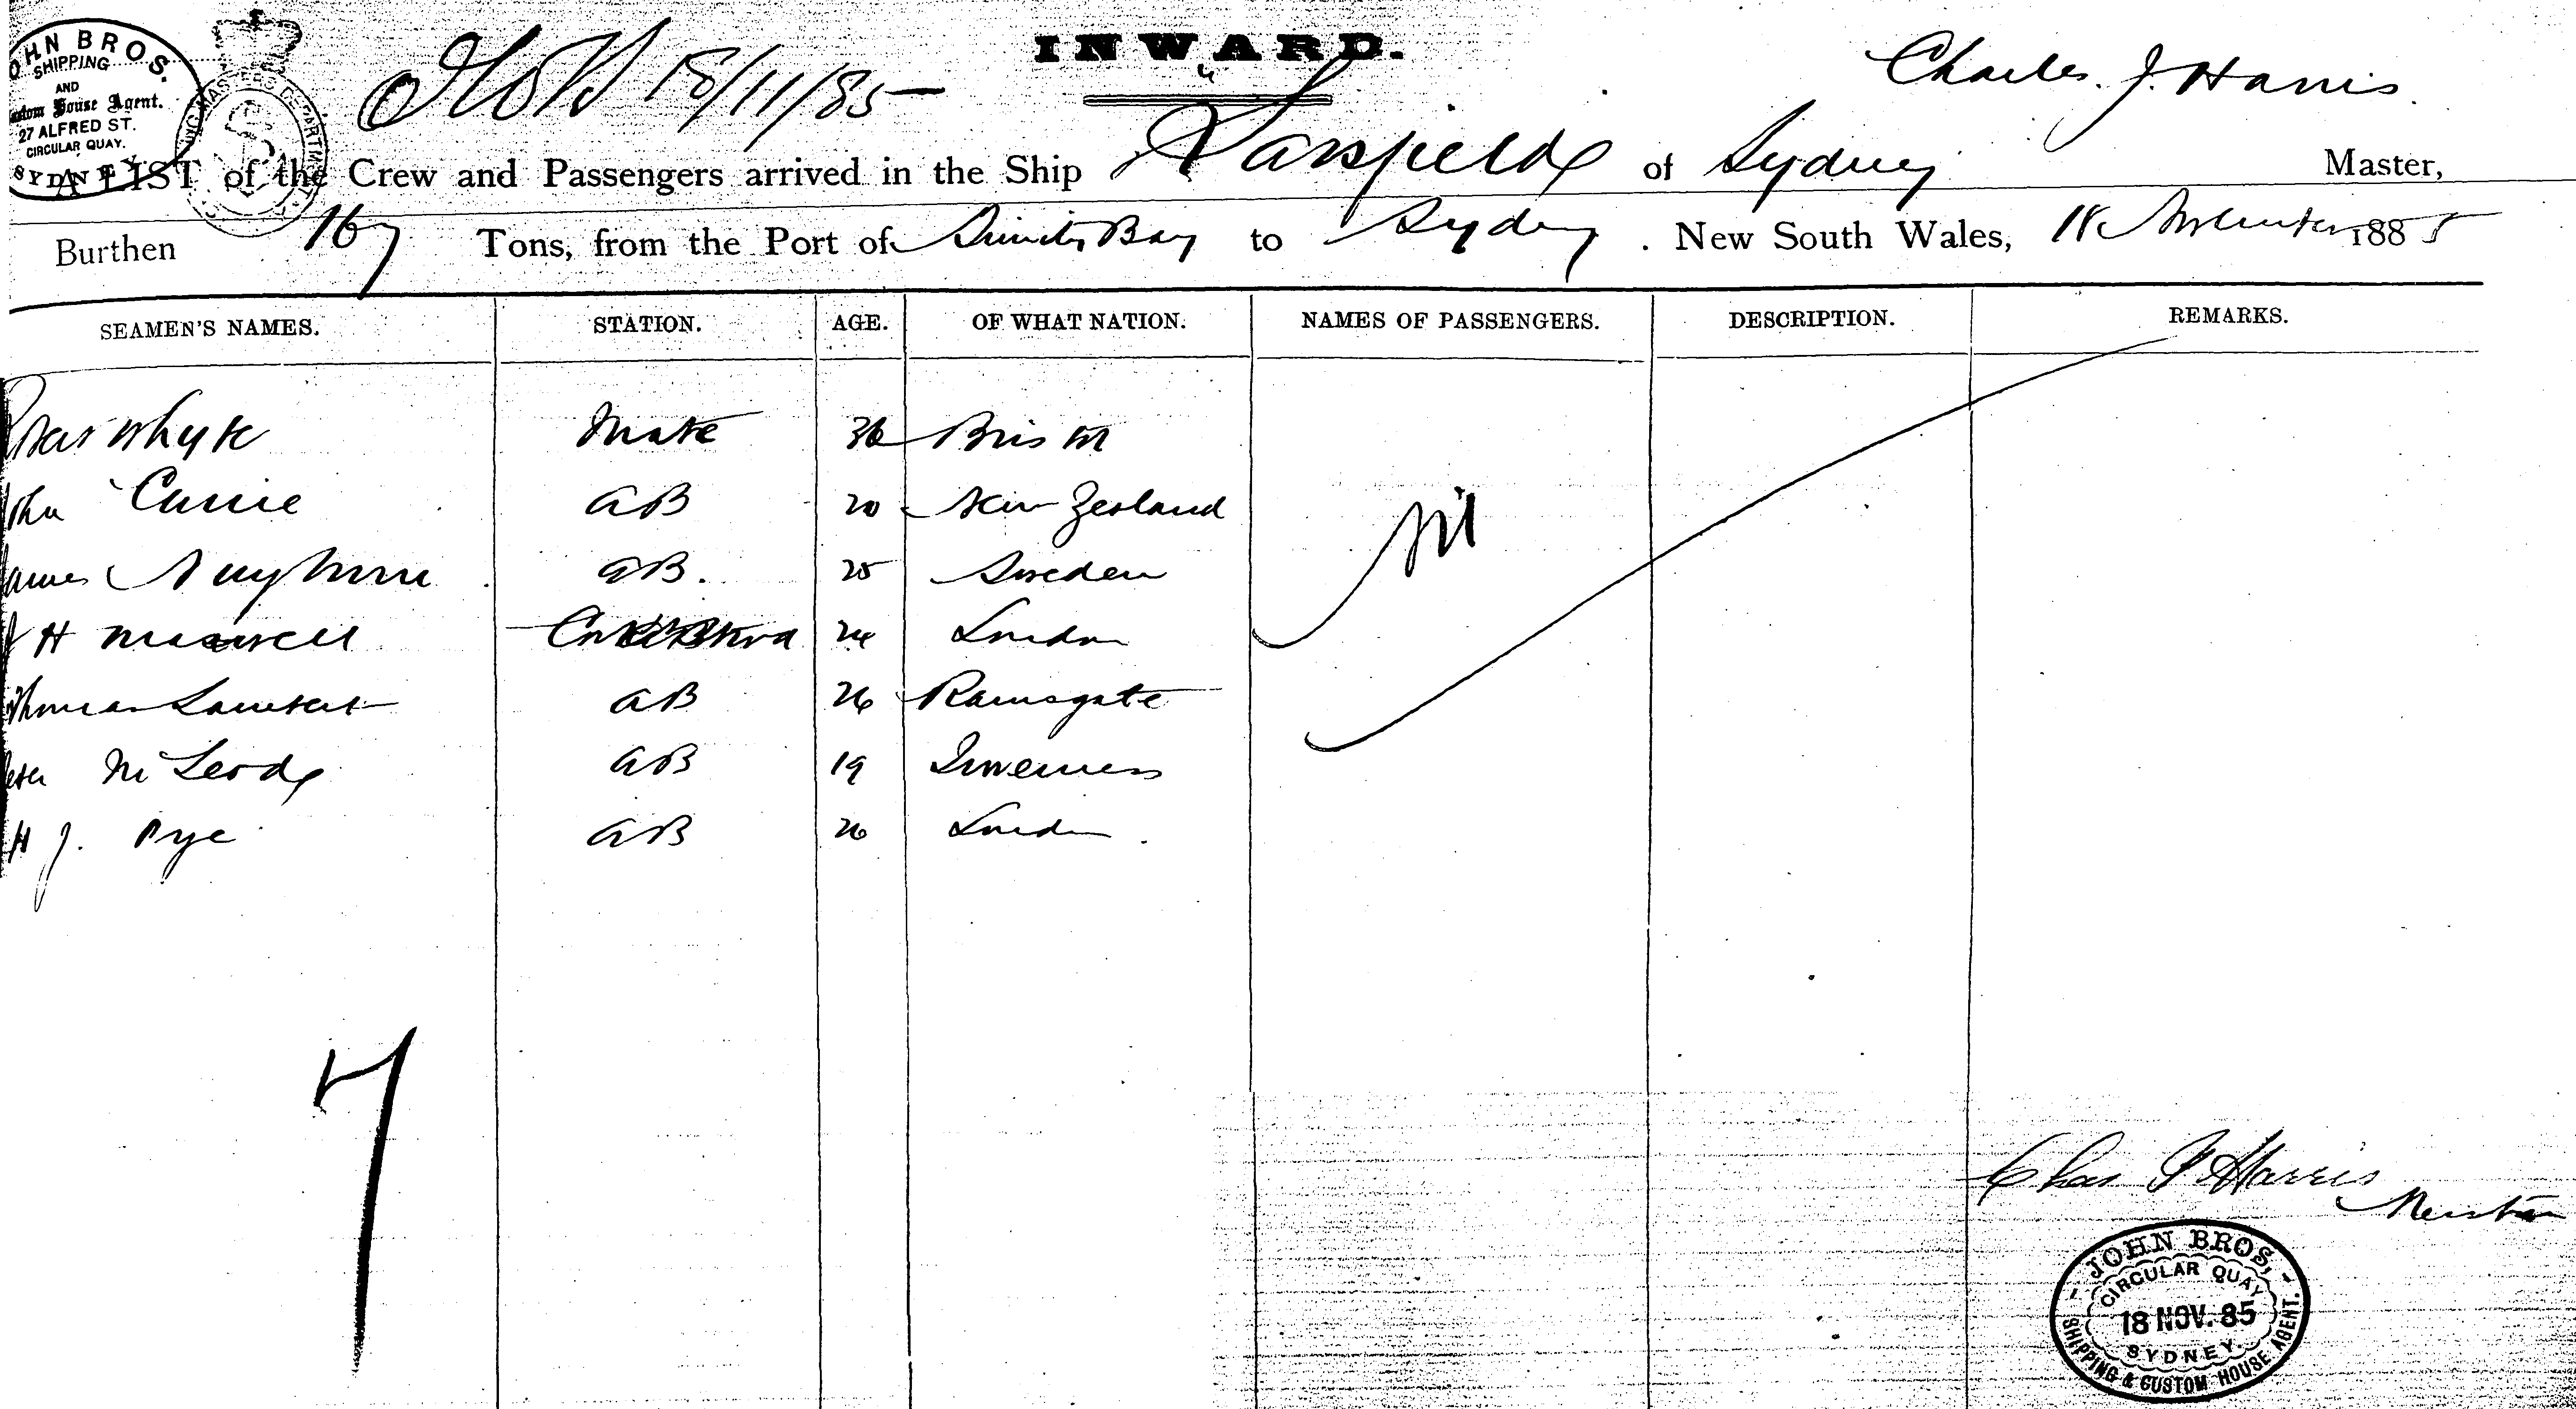 JOHN BROS.
SHIPPING
AND
Custom House Agent.
27 ALFRED ST.
CIRCULAR QUAY.
SYDNEY
18/11/85
INWARD.
Charles. J. Harris
A LIST of the Crew and Passengers arrived in the Ship of Sydney Master,
Burthen 167 Tons, from the Port of Trinity Bay to Sydney . New South Wales, 18 November 1885
SEAMEN'S NAMES. STATION. AGE. OF WHAT NATION. NAMES OF PASSENGERS. DESCRIPTION. REMARKS.
Whyte Mate 36 Bristol
John Currie AB 20 New Zealand Nil
James AB. 25 Sweden
H Maxwell 24 London
Thomas Lambert AB 26 Ramsgate
Peter McLeod AB 19 Inverness
H J. Pye AB 26 London
7
Chas J Harris
Master
JOHN BROS,
CIRCULAR QUAY
18 NOV. 85
SYDNEY
SHIPPING & CUSTOM HOUSE AGENT.